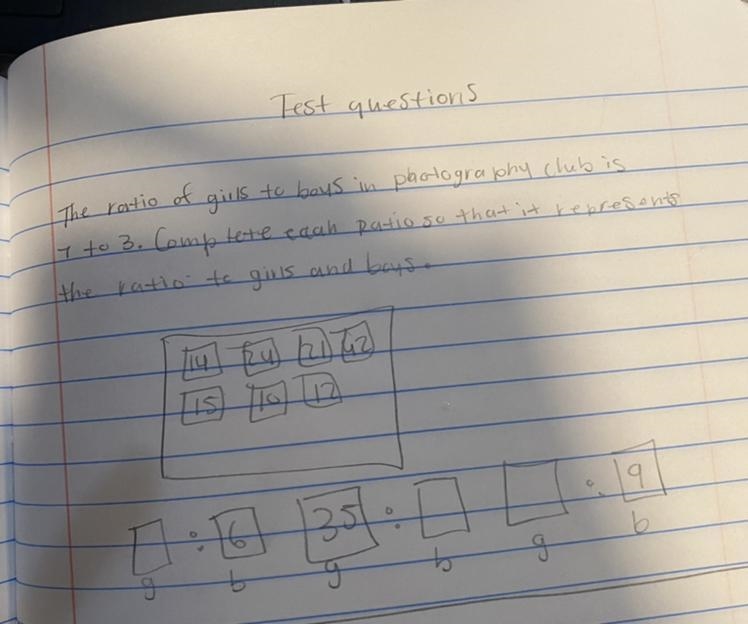 Test questions
The ratio of girls to boys in photography club is
7 to 3. Complete each ratio so that it represents
the ratio to girls and boys.
14 24 21 42
15 10 12
: 6 35 : : 9
g b g b g b